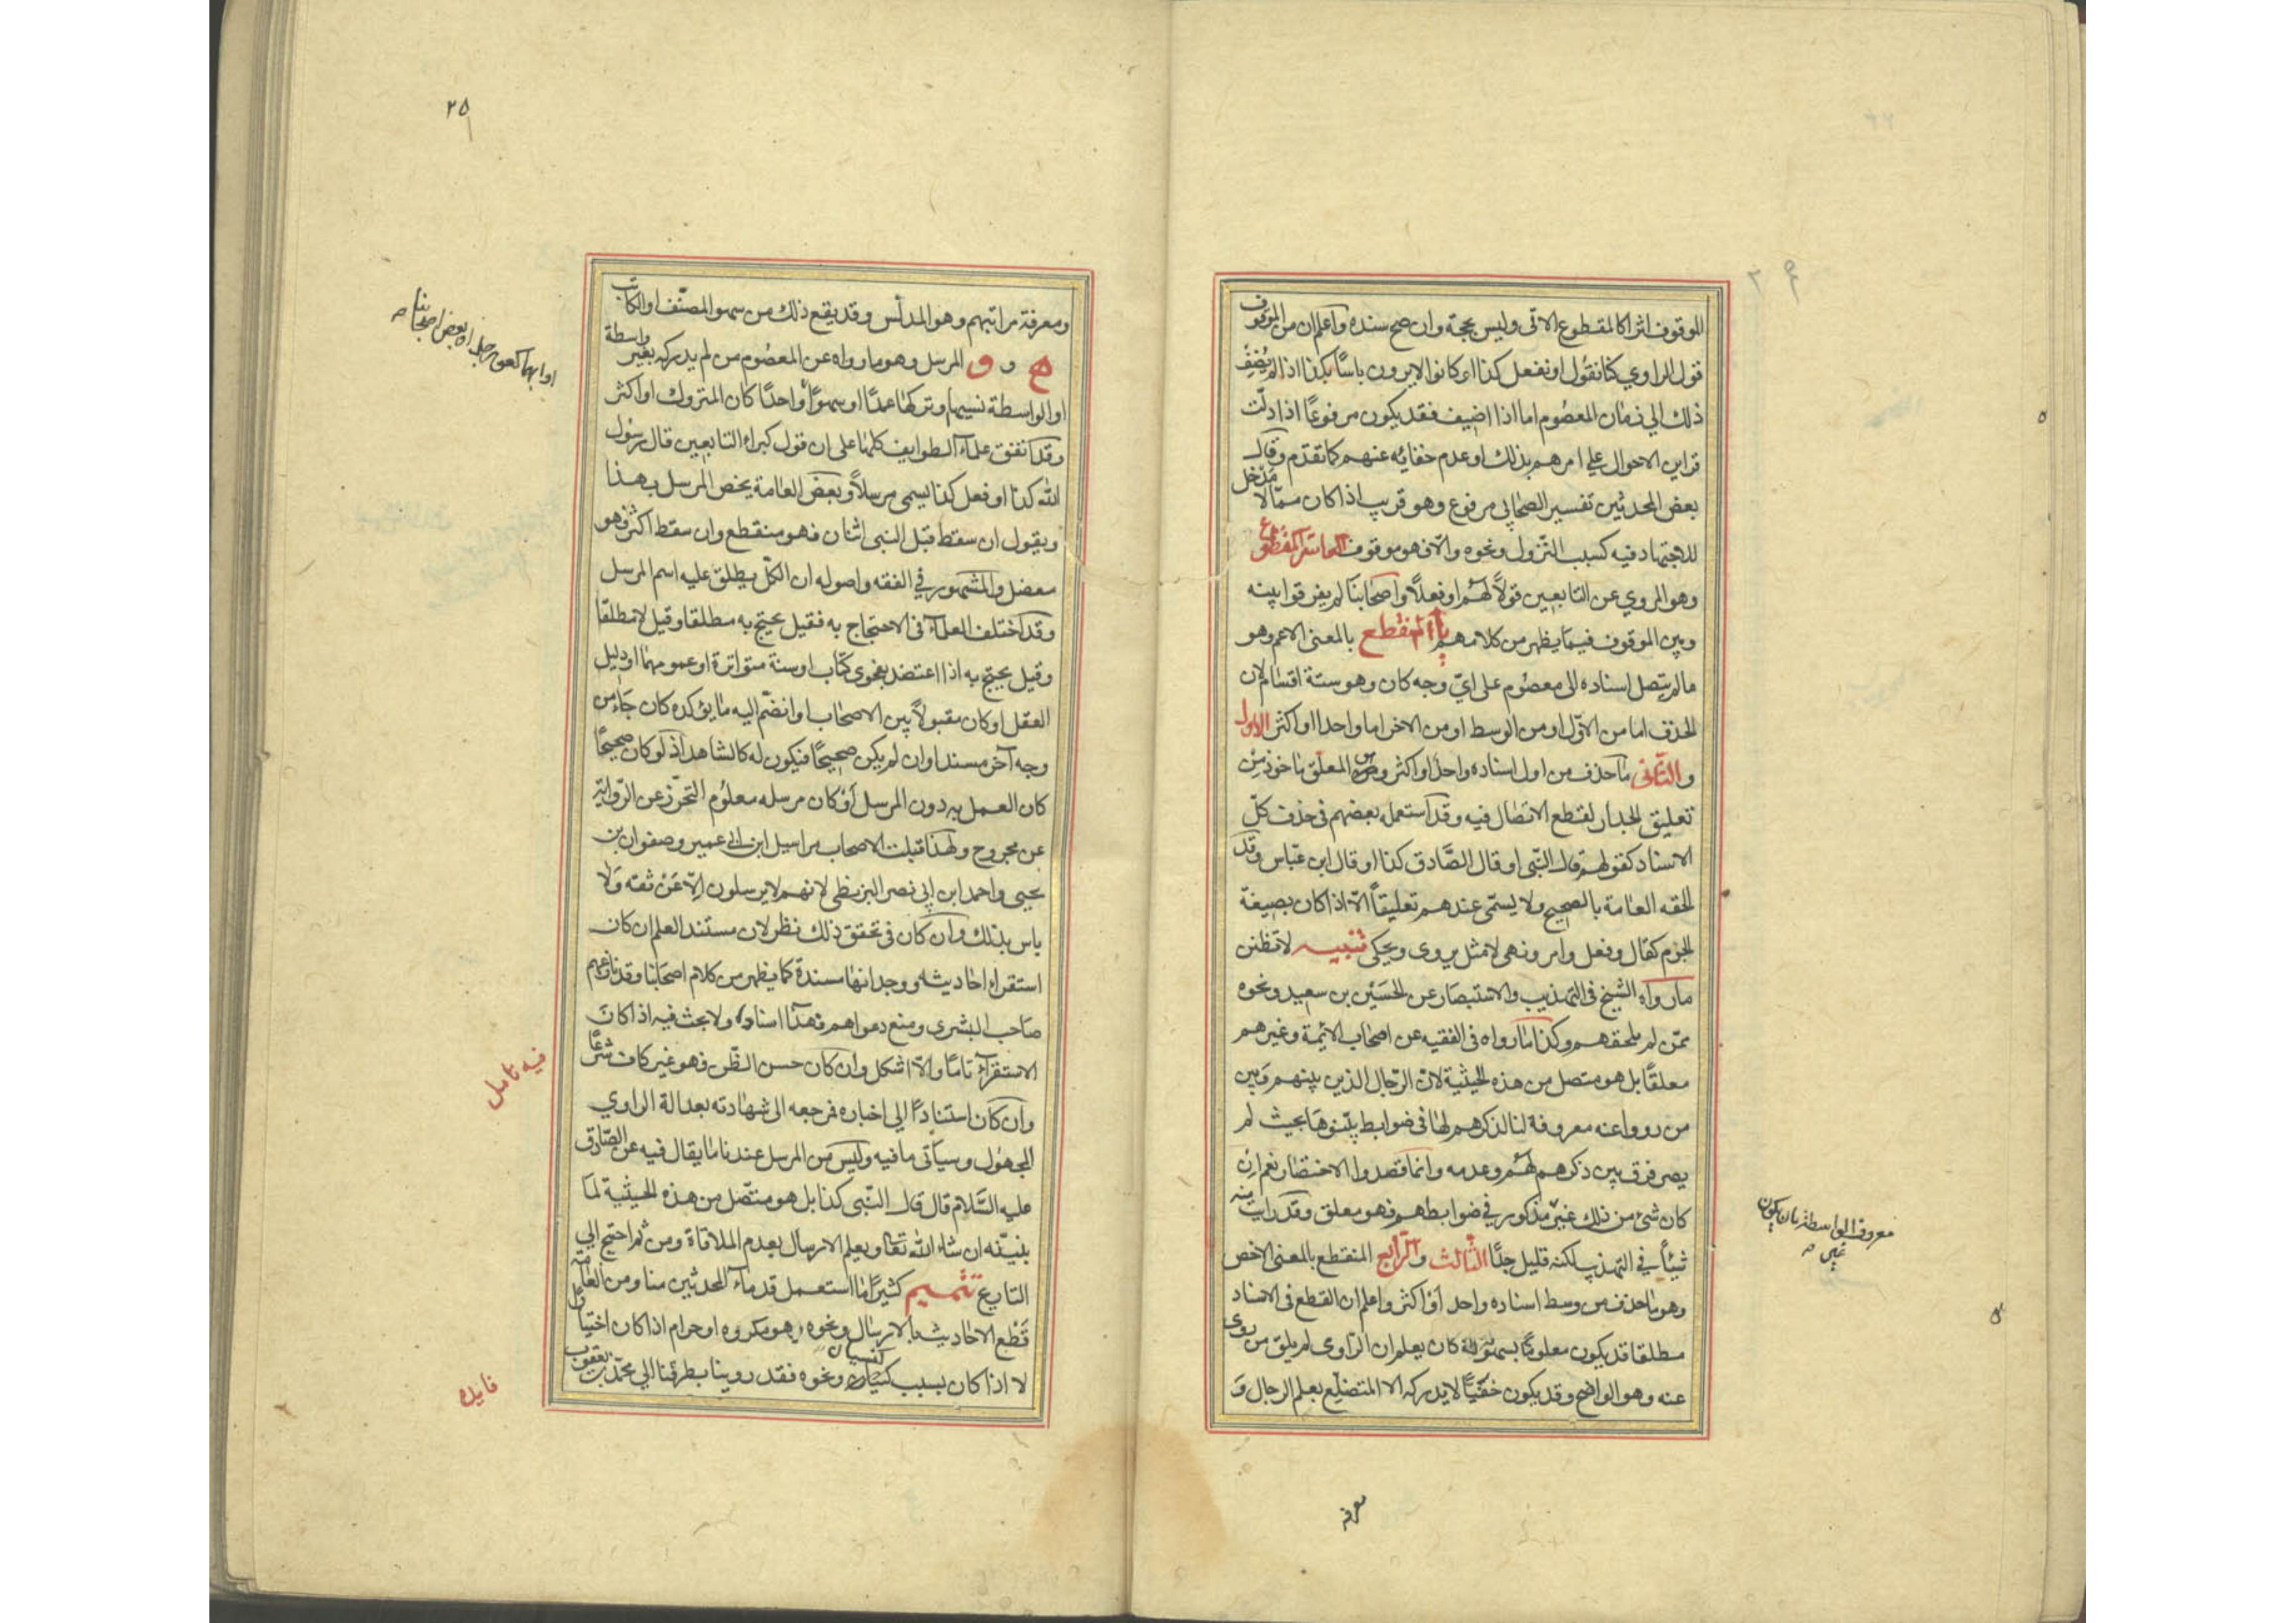 الموقوف اثرا كالمقطوع الاتى وليس بحجة وان صح سنده واعلم ان من الموقوف
قول الراوي كنا نقول او نفعل كذا او كانوا لا يرون باسا بكذا اذا لم يُضِف
ذلك الي زمان المعصوم اما اذا اضيف فقد يكون مرفوعًا اذا دلّت
قراين الاحوال على امرهم بذلك او عدم خفائه عنهم كما تقدم وقال
بعض المحدثين تفسير الصحابي مرفوع وهو قريب اذا كان ممّا لا مدخل
للاجتهاد فيه كسبب النّزول ونحوه والّا فهو موقوف العاشر المقطوع
وهو المروي عن التابعين قولاً لهم او فعلاً واصحابنا لم يفرقوا بينه
وبين الموقوف فيما يظهر من كلامهم يا المنقطع بالمعنى الاعم وهو
مالم يتصل اسناده الى معصوم على ايّ وجه كان وهو ستة اقسام لان
الحذف اما من الاوّل او من الوسط او من الاخر اما واحدا او اكثر الاول
والثّانى ما حذف من اول اسناده واحد او اكثر وهو المعلّق ماخوذ من
تعليق الجدار لقطع الاتصال فيه وقد استعمله بعضهم فى حذف كلّ
الاسناد كقولهم قال النّبى او قال الصّادق كذا او قال ابن عبّاس وقد
الحقه العامة بالصحيح ولا يسمّى عندهم تعليقاً الّا اذا كان بصيغة
الجزم كقال وفعل وامر ونهى لا مثل يروى ويحكى تنبيه لا تظنن
مارواه الشيخ فى التهذيب والاستبصار عن الحسين بن سعيد ونحوه
ممّن لم يلحقهم وكذا مارواه فى الفقيه عن اصحاب الائمة وغيرهم
معلقًا بل هو متصل من هذه الحيثية لان الرّجال الذين بينهم وبين
من رووا عنه معروفة لنا لذكرهم لها فى ضوابط بيّنوها بحيث لم
يصر فرق بين ذكرهم لهم وعدمه وانما قصدوا الاختصار نعم ان
كان شئ من ذلك غير مذكور في ضوابطهم فهو معلق وقد رايت منه
شيئاً في التهذيب لكنه قليل جدًّا الثّالث والرّابع المنقطع بالمعنى الاخص
وهو ما حذف من وسط اسناده واحد او اكثر واعلم ان القطع فى الاسناد
مطلقا قد يكون معلومًا بسهولة كان يعلم ان الرّاوى لم يلق من روى
عنه وهو الواضح وقد يكون خفيّاً لا يدركه الا المتضلّع بعلم الرجال و
معروف الواسطة بان يكون
غير
معرفة
٢٥
ومعرفة مراتبهم وهو المدلّس وقد يقع ذلك من سهو المصنّف او الكاتب
ه و و المرسل وهو ما رواه عن المعصوم من لم يدركه بغير واسطة
او الواسطة نسيها وتركها عمدًا او سهوًا واحدًا كان المتروك او اكثر
وقد اتفق علماء الطوايف كلها على ان قول كبراء التابعين قال رسول
الله كذا او فعل كذا يسمى مرسلاً وبعض العامة يخص المرسل بهذا
ويقول ان سقط قبل النبى اثنان فهو منقطع وان سقط اكثر فهو
معضل والمشهور في الفقه واصوله ان الكلّ يطلق عليه اسم المرسل
وقد اختلف العلماء فى الاحتجاج به فقيل يحتج به مطلقا وقيل لا مطلقا
وقيل يحتج به اذا اعتضد بفحوى كتاب او سنة متواترة او عمومهما او دليل
العقل او كان مقبولاً بين الاصحاب او انضمّ اليه ما يؤكده كان جاء من
وجه آخر مسندا وان لم يكن صحيحًا فيكون له كالشاهد اذ لو كان صحيحًا
كان العمل به دون المرسل او كان مرسله معلوم التحرّز عن الرّواية
عن مجروح ولهذا قبلت الاصحاب مراسيل ابن ابى عمير وصفوان بن
يحيى واحمد ابن ابي نصر البزنطى لانهم لا يرسلون الّا عن ثقة ولا
باس بذلك وان كان فى تحقق ذلك نظر لان مستند العلم ان كان
استقراء احاديثه ووجدانها مسندة كما يظهر من كلام اصحابنا وقد نازعهم
صاحب البشرى ومنع دعواهم فهذا اسناد ولا بحث فيه اذا كان
الاستقراء تامًا والّا اشكل وان كان حسن الظّن فهو غير كاف شرعًا
وان كان استنادًا الي اخباره فمرجعه الى شهادته بعدالة الراوي
المجهول وسياتى ما فيه وليس من المرسل عندنا ما يقال فيه عن الصّادق
عليه السّلام قال قال النّبى كذا بل هو متّصل من هذه الحيثية لما
بنبيّنه ان شاء الله تعالى ويعلم الارسال بعدم الملاقاة ومن ثم احتيج الي
التاريخ تتميم كثيرًا ما استعمل قدماء المحدثين منا ومن العامّة
قطع الاحاديث بالارسال ونحوه وهو مكروه او حرام اذا كان اختيارًا
لا اذا كان بسبب كنسيان ونحوه فقد روينا بطرقنا الي محمّد بن يعقوب
او ابهمها كعن رجل او بعض اصحابنا
فيه تامل
فايده